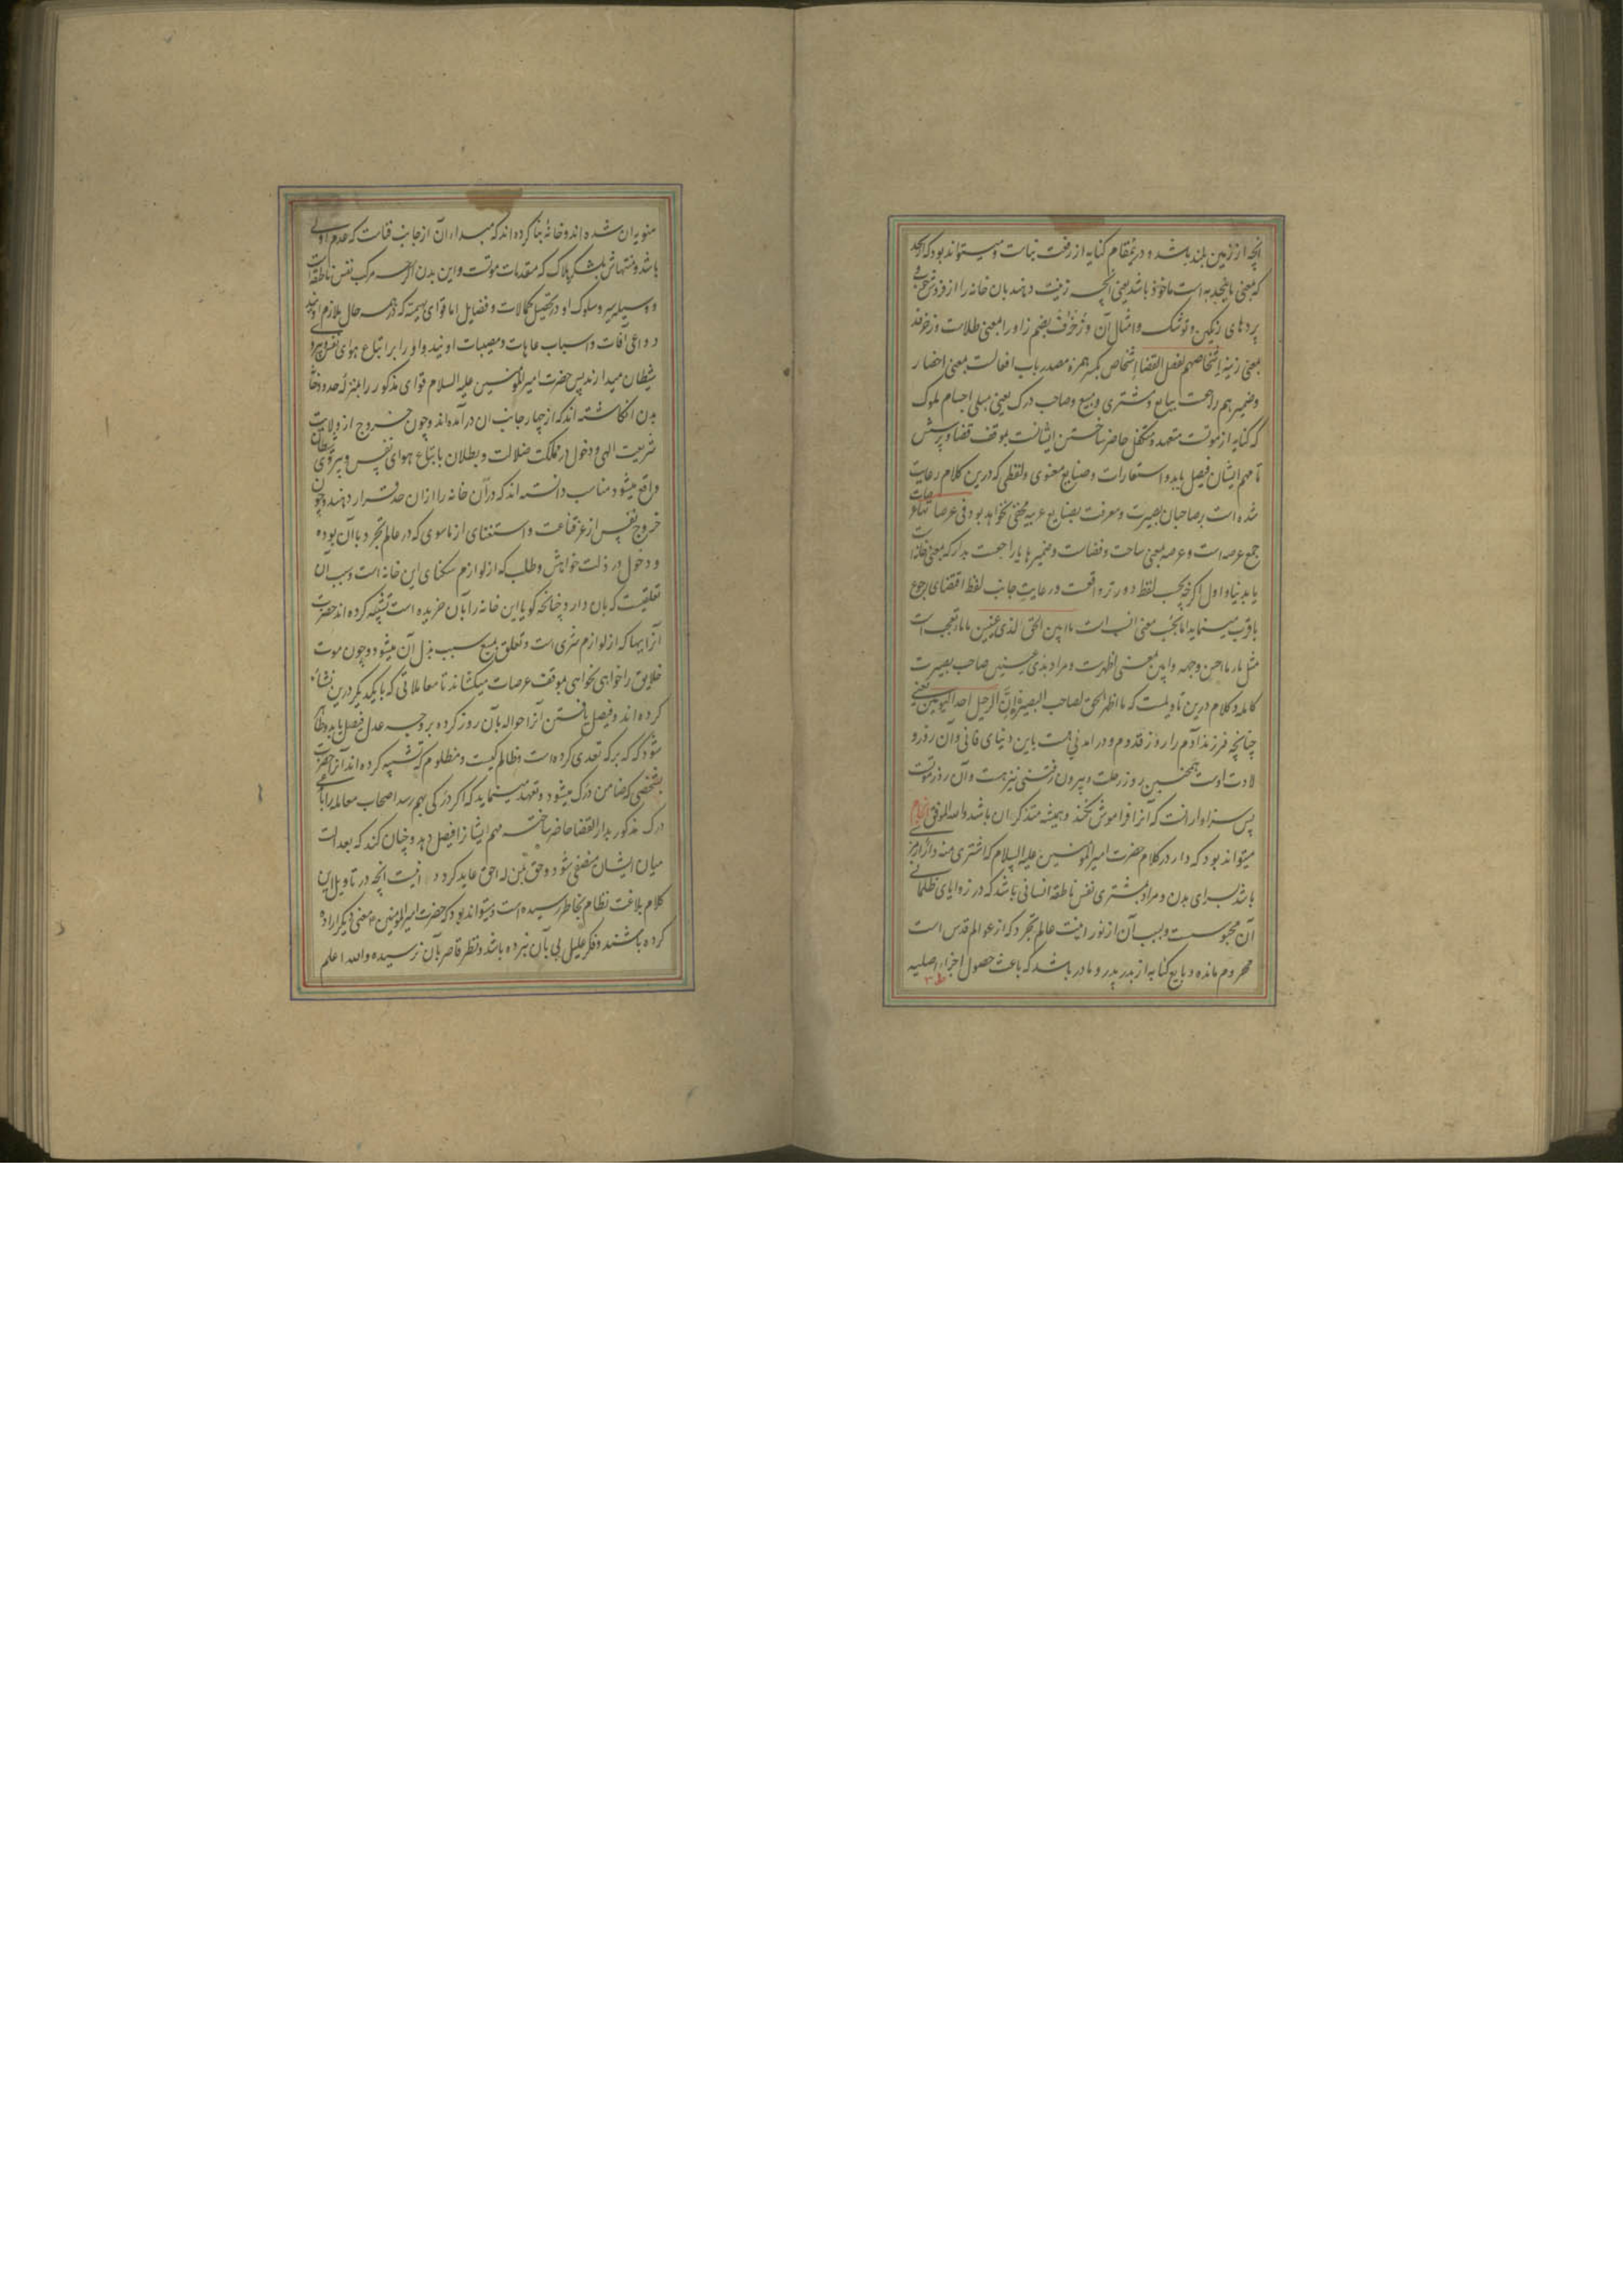 آنچه از زمین بلند باشد و درینمقام کنایه از رفعت بناست و میتواند بود که نجد
که بمعنی ما ینجد به است ماخوذ باشد یعنی آنچه زینت دهند بان خانه را از فروش خوب و
پردهای رنگین و توشک و امثال آن و زُخرُف بضم زا و را بمعنی طلاست و زخرفه
بمعنی زینه اشخاصهم لفصل القضا إشخاص بکسر همزه مصدر باب افعالست بمعنی احضار
و ضمیر هم راجعست ببایع و مشتری و مبیع و صاحب درک یعنی مبلی اجسام ملوک
که کنایه از موتست متعهد و متکفل حاضر ساختن ایشانست بموقف قضا و پرسش
تا مهم ایشان فیصل یابد و استعارات و صنایع معنوی و لفظی که درین کلام رعایت
شده است بر صاحبان بصیرت و معرفت بصنایع عربیه مخفی نخواهد بود فی عرصاتها عرصات
جمع عرصه است و عرصه بمعنی ساحت و فضاست و ضمیر ها یا راجعست بدار که بمعنی خانه است
یا بدنیا و اول اگرچه بحسب لفظ دورتر واقعست و رعایت جانب لفظ اقتضای رجوع
باقرب مینماید اما بحسب معنی انسب است ما ابین الحق لذی عینین ما ما تعجب است
مثل ما ما احسن وجهه و ابین بمعنی اظهرست و مراد بذی عینین صاحب بصیرت
کامله و کلام درین تاویلست که ما اظهر الحق لصاحب البصیرة إنّ الرحیل احد الیومین یعنی
چنانچه فرزند آدم را روز قدوم و در آمدنی هست باین دنیای فانی و آن روز و
لادت اوست همچنین روز رحلت و بیرون رفتنی نیز هست و آن روز موتست
پس سزاوار انست که آنرا فراموش نکند و همیشه متذکر ان باشد والله الموفق
میتواند بود که دار در کلام حضرت امیر المؤمنین علیه السلام که اشتری منه دارا رمز
باشد برای بدن و مراد بمشتری نفس ناطقه انسانی باشد که در زوایای ظلمانی
آن محبوسست و بسبب آن از نورانیت عالم تجرد که از عوالم قدس است
محروم مانده و بایع کنایه از بدر پدر و مادر باشد که باعث حصول اجزاء اصلیه
منویه ان شده اند و خانه بنا کرده اند که مبداء ان از جانب فناست که عدم اولی
باشد و منتهاش بلشکر هلاک که مقدمات موتست و این بدن اگرچه مرکب نفس ناطقه است
و وسیله سیر و سلوک او در تحصیل کمالات و فضایل اما قوای بهیمه که در همه حال ملازم اویند
دواعی آفات و اسباب عاهات و مصیبات اویند و او را بر اتباع هوای نفس و پیروی
شیطان میدارند پس حضرت امیر المؤمنین علیه السلام قوای مذکور را بمنزله حدود خانه
بدن انگاشته اند که از چهار جانب ان در آمده اند و چون خروج از ولایت
شریعت الهی و دخول در مملکت ضلالت و بطلان باتباع هوای نفس و پیروی شیطان
واقع میشود مناسب دانسته اند که در آن خانه را از ان حد قرار دهند و چون
خروج نفس از عز قناعت و استغنای از ماسوی که در عالم تجرد با آن بوده
و دخول در ذلت خواهش و طلب که از لوازم سکنای این خانه است و سبب آن
تعلقیست که بان دارد چنانچه گویا این خانه را بآن خریده است تشبیه کرده اند حضرت
آنرا ببها که از لوازم شری است و تعلق بمبیع سبب بذل آن میشود و چون موت
خلایق را خواهی نخواهی بموقف عرصات میکشاند تا معاملاتی که با یکدیگر درین نشأه
کرده اند و فیصل یافتن آنرا حواله بآن روز کرده بر وجه عدل فیصل یابد و ظاهر
شود که که بر که تعدی کرده است و ظالم کیست و مظلوم که تشبیه کرده اند آنرا حضرت
بشخصی که ضامن درک میشود و تعهد مینماید که اگر درکی بهم رسد اصحاب معامله را با
درک مذکور بدار القضا حاضر ساخته مهم ایشانرا فیصل دهد و چنان کند که بعدالت
میان ایشان منقضی شود و حق بمن له الحق عاید کردد اینست آنچه در تاویل این
کلام بلاغت نظام بخاطر رسیده است و میتواند بود که حضرت امیر المؤمنین ع معنی دیگر اراده
کرده باشند و فکر علیل پی بآن نبرده باشد و نظر قاصر بآن نرسیده والله اعلم